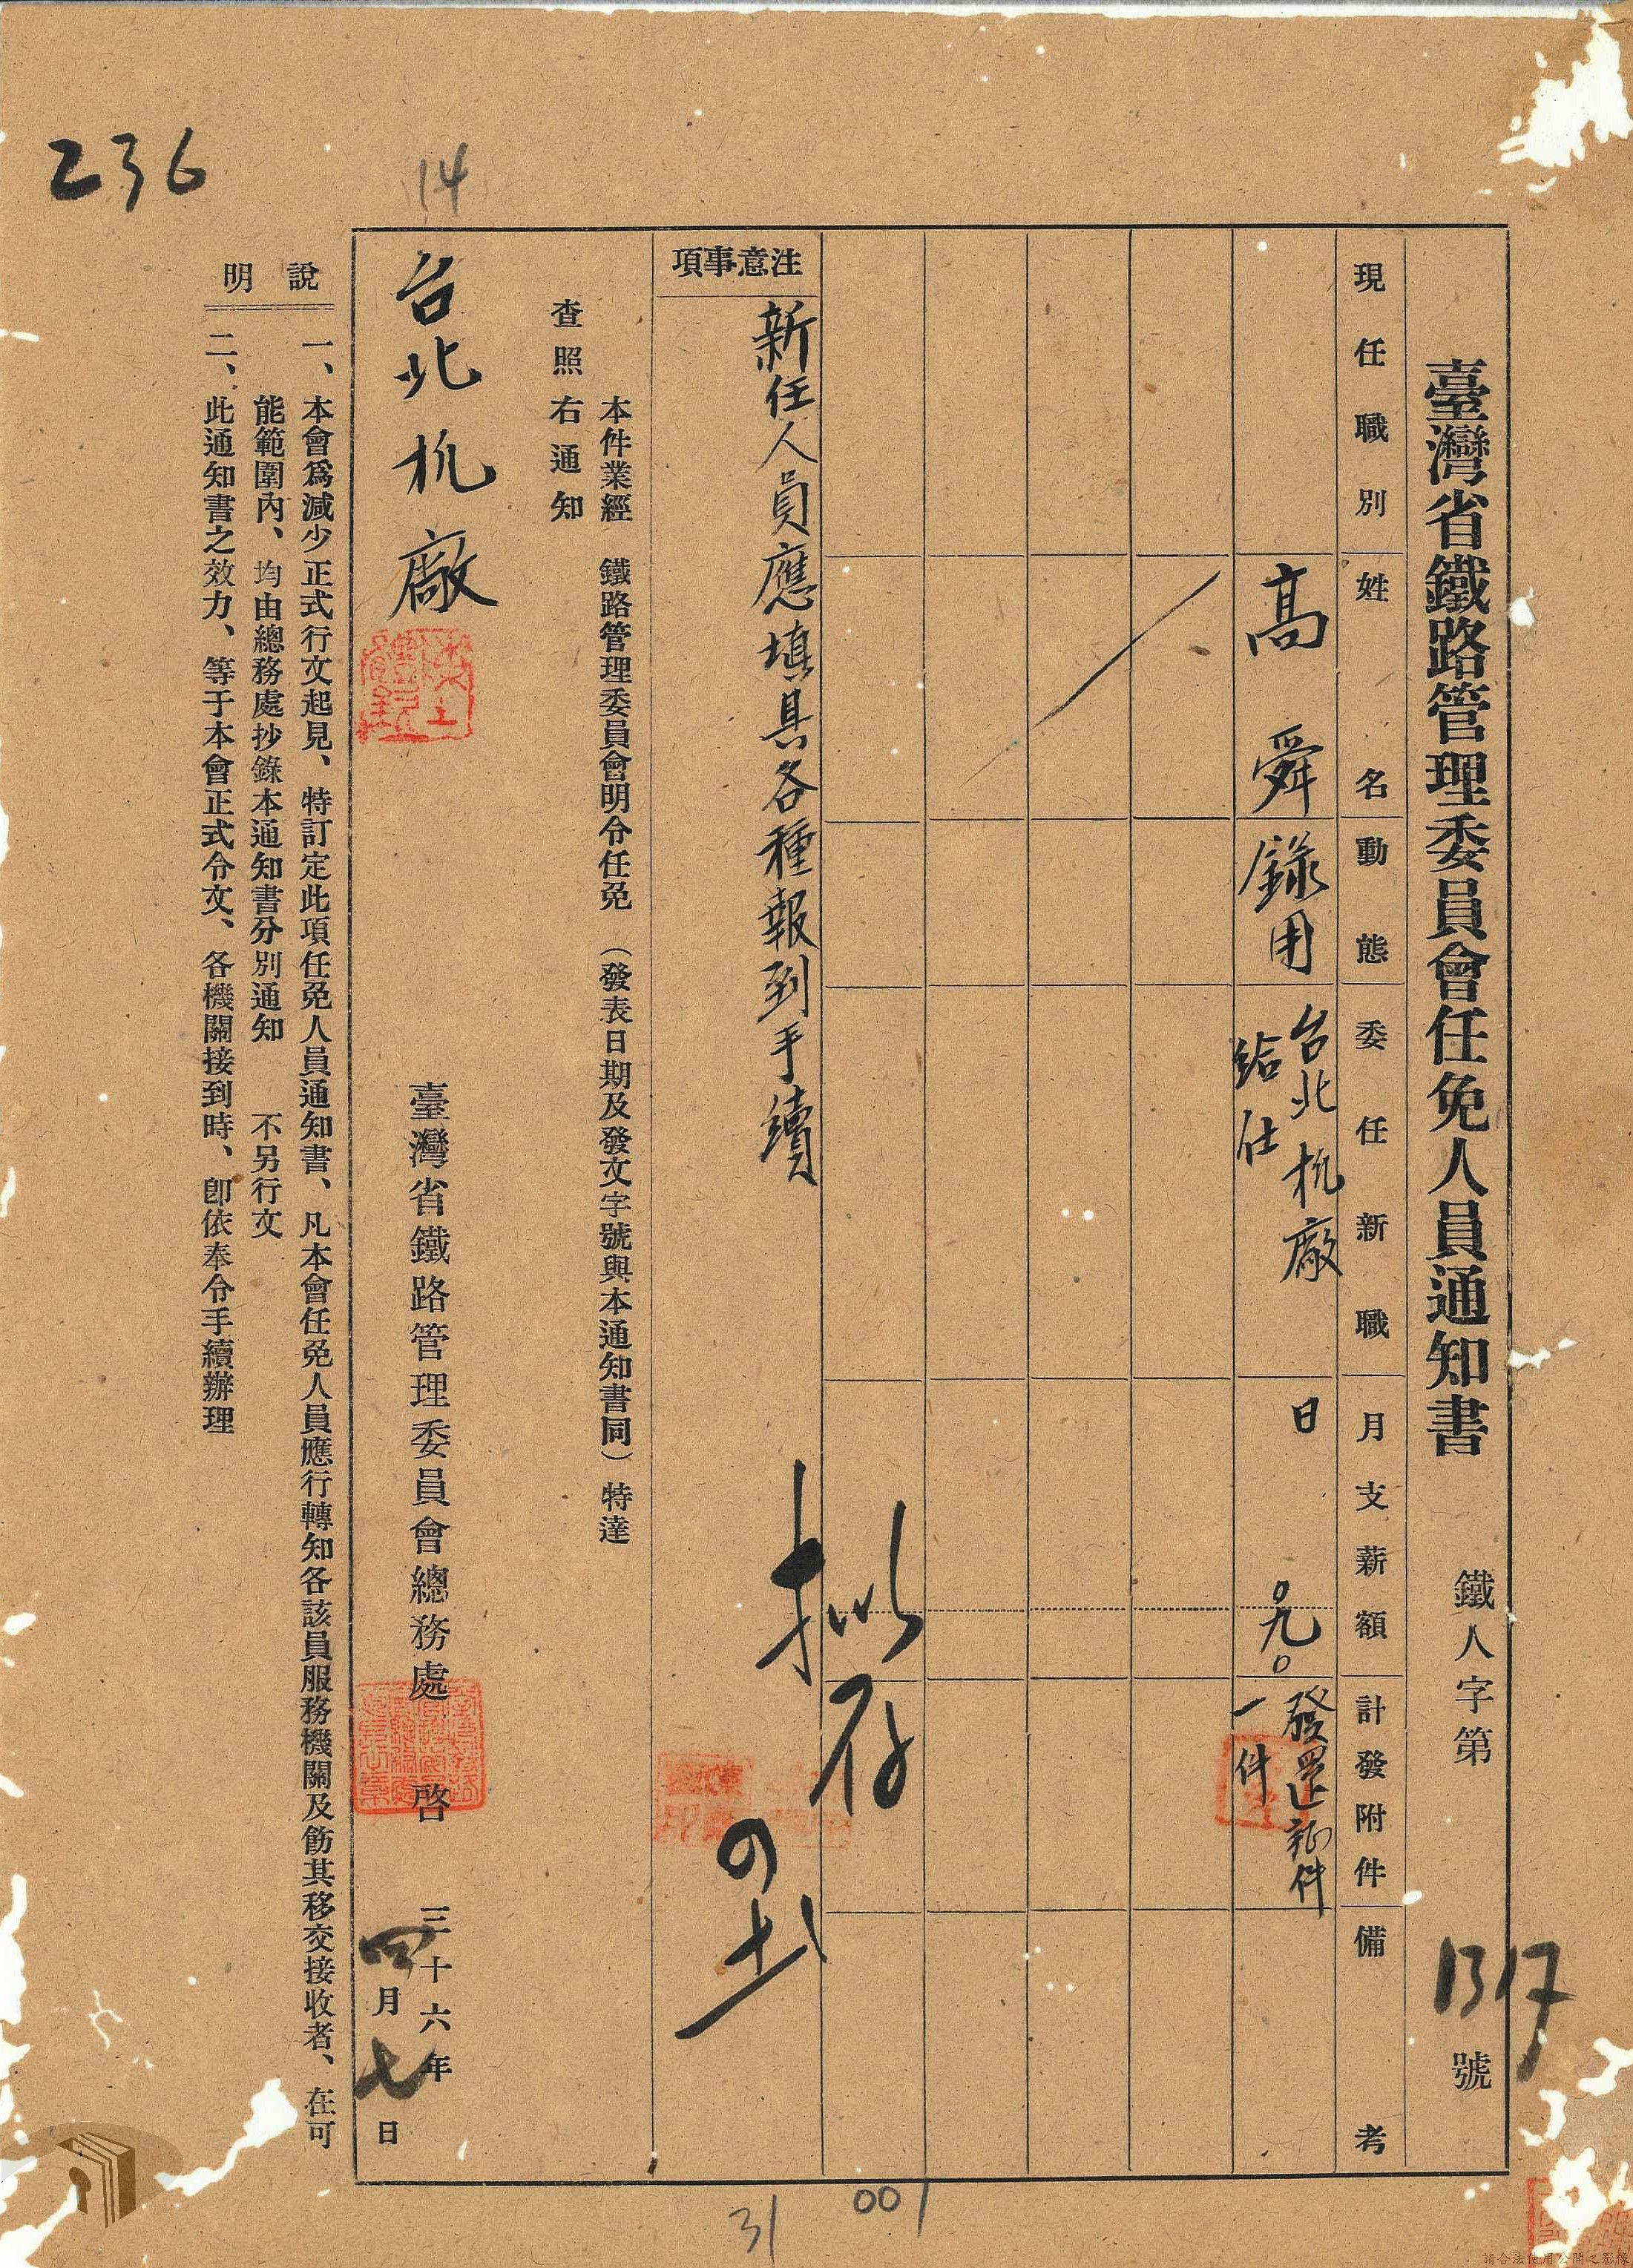 236
14
臺灣省鐵路管理委員會任免人員通知書
鐵人字第
號
現任職別
姓名
動態
委任新職
月支薪額
計發附件
備考
高舜
錄用
台北机廠
給仕
日
九〇
發還証件
一件
注意事項
新任人員應填具各種報到手續
拟存
本件業經 鐵路管理委員會明令任免 (發表日期及發文字號與本通知書同) 特達
查照右通知
台北机廠
臺灣省鐵路管理委員會總務處 啓
三十六年
四月七日
說明
一、本會為減少正式行文起見、特訂定此項任免人員通知書、凡本會任免人員應行轉知各該員服務機關及飭其移交接收者、在可
能範圍內、均由總務處抄錄本通知書分別通知 不另行文
二、此通知書之效力、等于本會正式令文、各機關接到時、卽依奉令手續辦理
31
001
請合法使用公開之影像